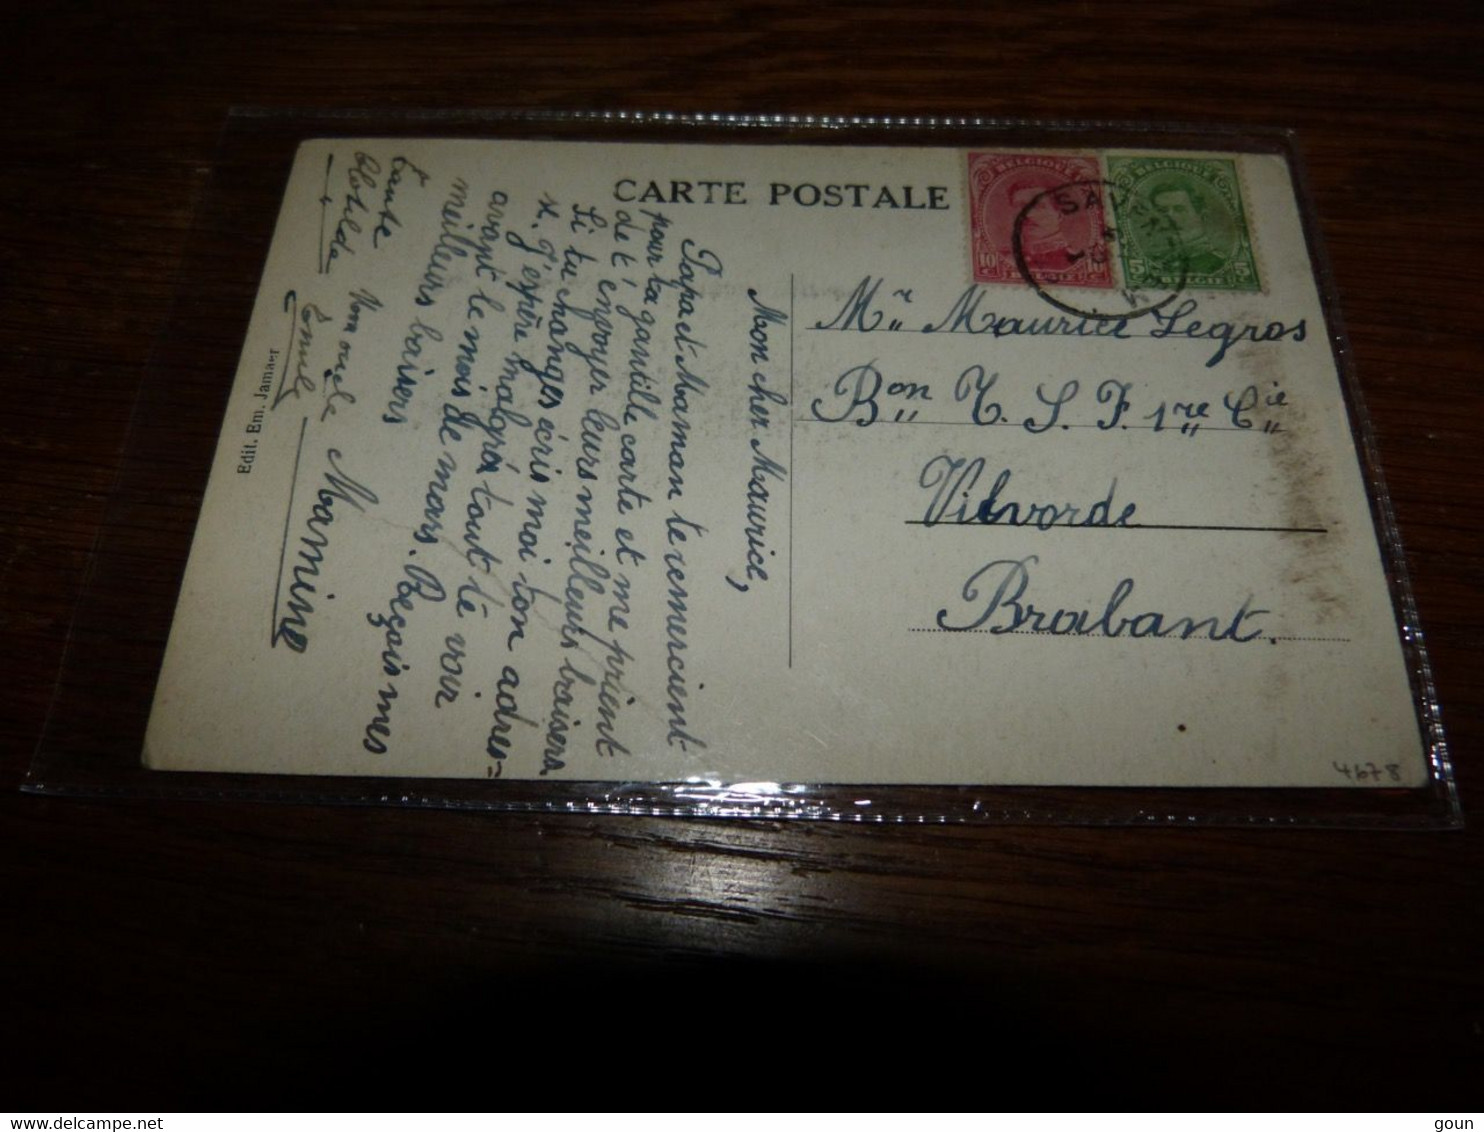 CARTE POSTALE
BELGIQUE
10 C
10 C
BELGIE
BELGIQUE
5 C
5 C
BELGIE
Mr Maurice Legros
Bon T. S. F. 1re Cie
Vilvorde
Brabant.
Mon cher Maurice,
Papa et Maman te remercient
pour ta gentille carte et me prient
de t'envoyer leurs meilleurs baisers
Si tu changes écris moi ton adres=
se. J'espère malgré tout te voir
avant le mois de mars. Reçois mes
meilleurs baisers
Mamine
Tante
Clotilde
Emile
Edit. Em. Jamaer
4678
Delcampe.net
goun